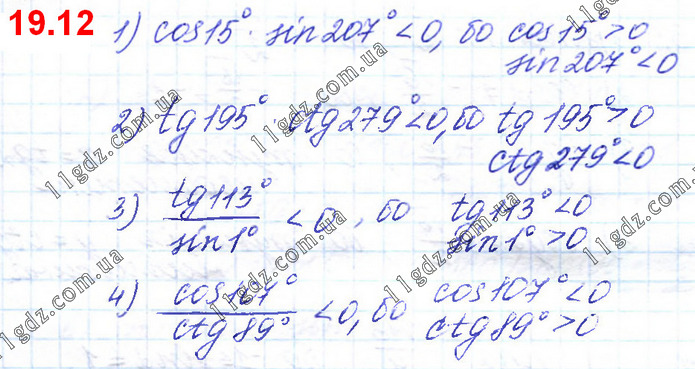 19.12
1) cos15° · sin207° < 0, бо cos15° > 0
sin207° < 0
2) tg195° · ctg279° < 0, бо tg195° > 0
ctg279° < 0
3) tg113° / sin1° < 0, бо tg113° < 0
sin1° > 0
4) cos107° / ctg89° < 0, бо cos107° < 0
ctg89° > 0
11gdz.com.ua
11gdz.com.ua
11gdz.com.ua
11gdz.com.ua
11gdz.com.ua
11gdz.com.ua
11gdz.com.ua